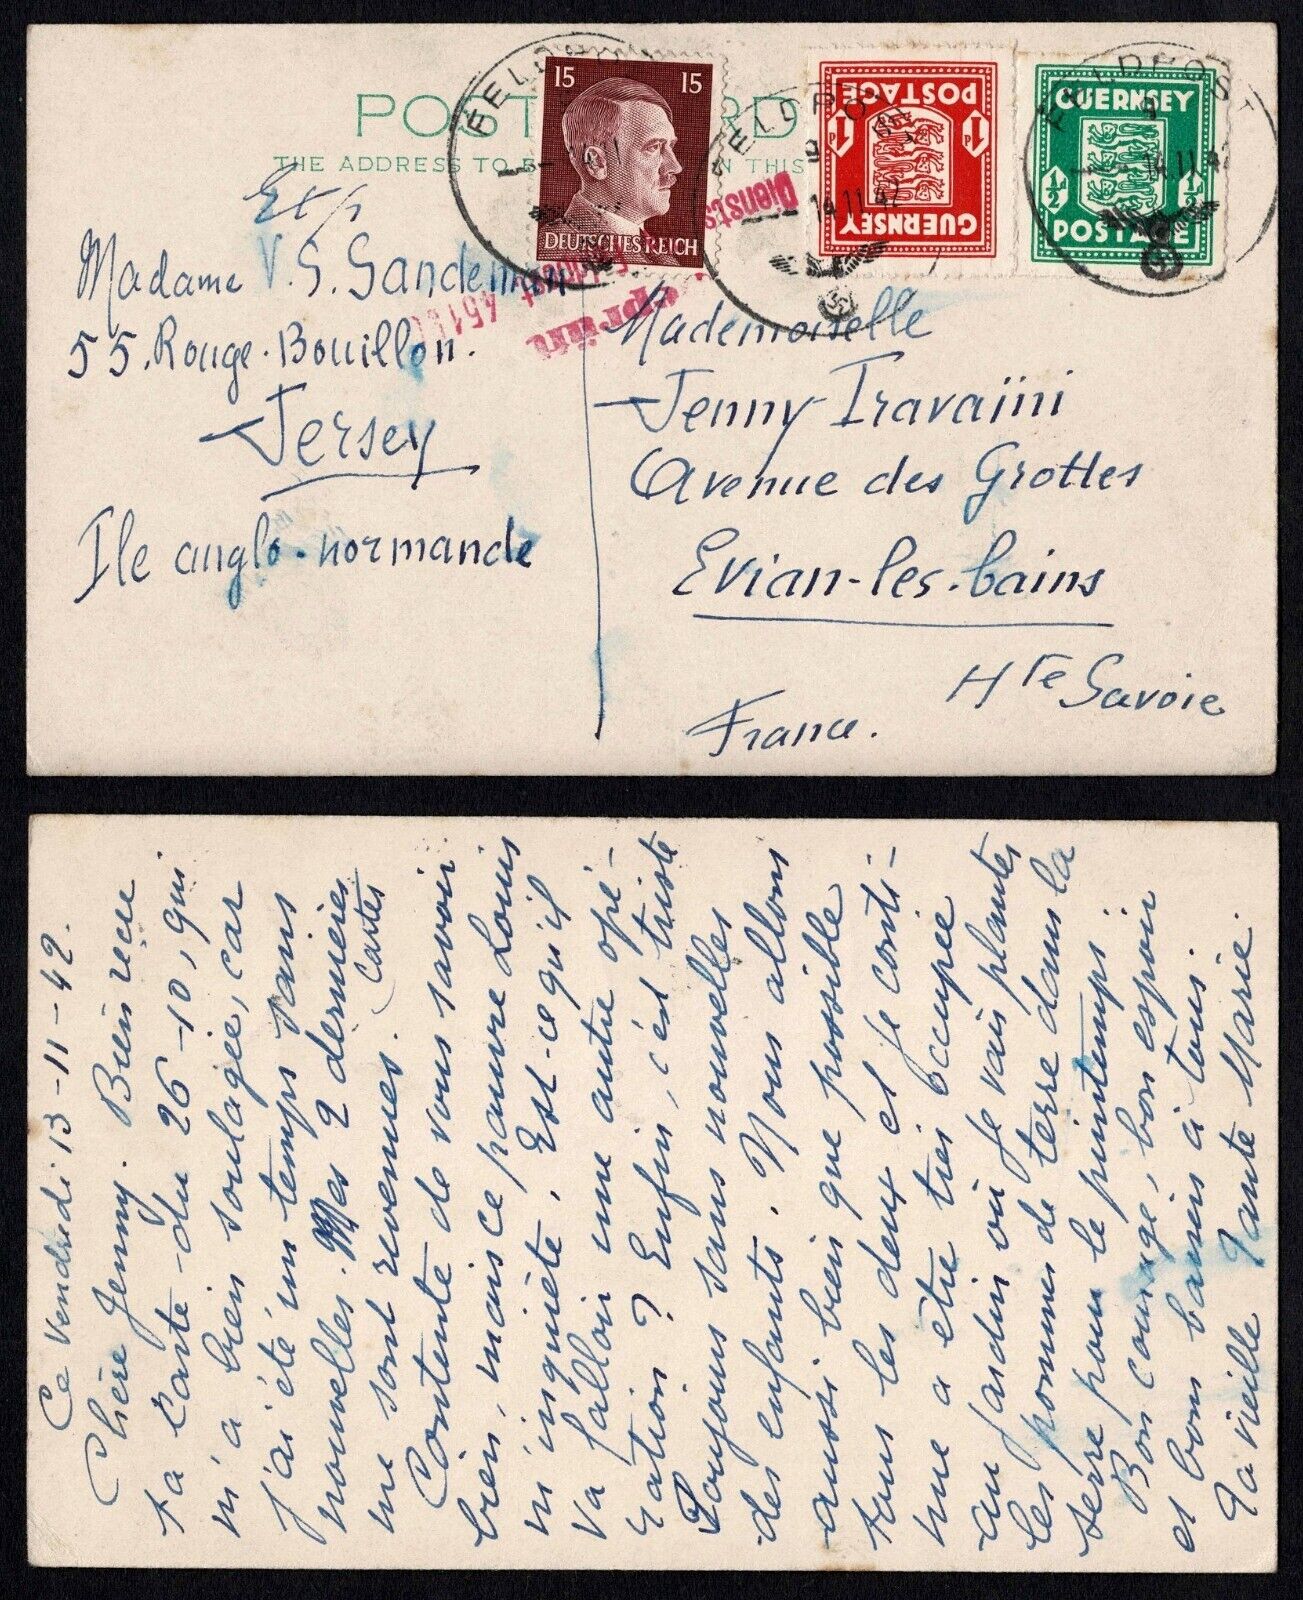 POST CARD
THE ADDRESS TO BE IN THIS
15 15
DEUTSCHES REICH
POSTAGE
1P 1P
GUERNSEY
GUERNSEY
½ ½
POSTAGE
FELDPOST
14.11.42
FELDPOST
14.11.42
Dienst
geprüft
Exp
Madame V. S. Sandeman
55. Rouge-Bouillon.
Jersey
Ile anglo-normande
Mademoiselle
Jenny Travaïni
Avenue des Grottes
Evian-les-bains
Hte Savoie
France.
Ce Vendredi 13-11-42.
Chère Jenny. Bien reçu
ta Carte du 26-10, qui
m'a bien soulagée, car
j'ai été un temps sans
nouvelles. Mes 2 dernières
Cartes
me sont revenues.
Contente de vous savoir
bien, mais ce pauvre Louis
m'inquiète. Est-ce qu'il
va falloir une autre opé-
ration? Enfin, c'est triste
Toujours sans nouvelles
des enfants. Nous allons
aussi bien que possible
tous les deux et je conti-
nue a être très occupée
au jardin où je vais planter
les pommes de terre dans la
serre pour le printemps
Bon courage, bon espoir
et bons baisers à tous.
Ta vieille Tante Marie.